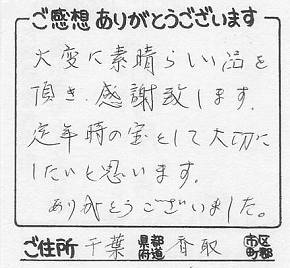 ご感想ありがとうございます
大変に素晴らしい品を
頂き、感謝致します。
定年時の宝として大切に
したいと思います。
ありがとうございました。
ご住所 千葉 都道府県 香取 市区町郡